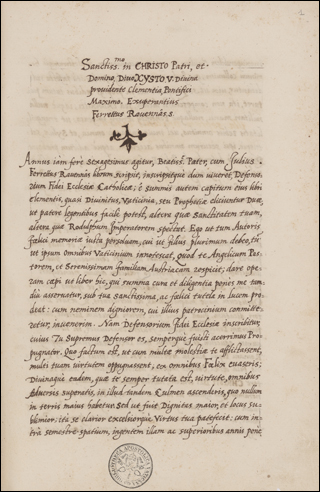 Sanctiss.mo in CHRISTO Patri, et
Domino, Divo XYSTO V. Divina
providente Clementia, Pontifici
Maximo. Exuperantius
Ferrettus Ravennas. s.
Annus iam ferè sexagesimus agitur, Beatiss. Pater, cum Iulius
Ferrettus Ravennas librum scripsit, inscripsitque dum viveret, Defenso,
rium Fidei Ecclesiæ Catholicæ; è summis autem capitum eius libri
elementis, quasi Divinitus, Vaticinia, seu Prophetiæ eliciuntur Duæ,
ut patere legentibus facile potest, altera quæ Sanctitatem tuam,
altera quæ Rodulphum Imperatorem spectat. Ego ut tum Autoris
fælici memoriæ iusta persolvam, cui ut filius plurimum debeo, tũ
ut ipsum omnibus Vaticinium innotescat, quod te Angelicum Pas,
torem, et Serenissimam familiam Austriacam respicit; dare ope,
ram cæpi ut liber hic, qui summa cura et diligentia penes me tum,
diu asservatur, sub tua Sanctissima, ac fælici tutela in lucem pro,
deat: cum neminem digniorem, cui illius patrocinium committe,
retur, invenerim. Nam Defensorium fidei Ecclesiæ inscribitur,
cuius Tu Supremus Defensor es, semperque fuisti acerrimus Pro,
pugnator. Quo factum est, ut cum multæ molestiæ te afflictassent,
multi tuam virtutem oppugnassent, ex omnibus Fælix evaseris;
Divinaque eadem, quæ te semper tutata est, virtute, omnibus
Adversis superatis, in illud tandem Culmen ascenderis, quo nullum
in terris maius habetur. Sed ut fuit Dignitas maior, et locus su,
blimior: ità se clarior excelsiorque Virtus tua patefecit: cum in,
trà semestre spatium, ingentem illam ac superioribus annis pene